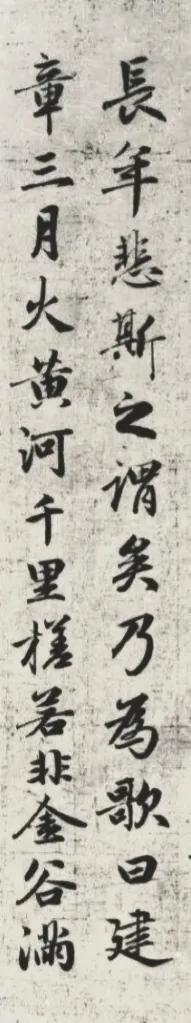 長年悲斯之謂矣乃為歌曰建
章三月火黄河千里槎若非金谷滿